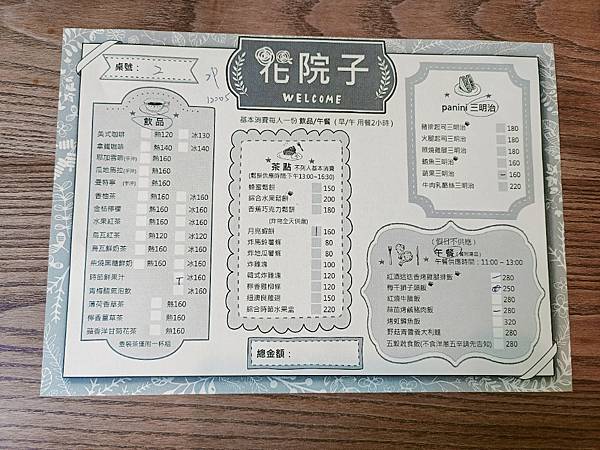 桌號： 2
花院子
WELCOME
基本消費每人一份 飲品/午餐 (早/午 用餐2小時)
飲品
美式咖啡 熱120 冰130
拿鐵咖啡 熱140 冰140
耶加雪啡(手沖) 熱160
瓜地馬拉(手沖) 熱160
曼特寧 (手沖) 熱160
香柚茶 熱160 冰160
金桔檸檬 熱160 冰160
水果紅茶 熱160 冰160
烏瓦紅茶 熱120 冰120
烏瓦鮮奶茶 熱160 冰160
柴燒黑糖鮮奶 熱160 冰160
時節鮮果汁 冰160
青梅醋氣泡飲 冰160
薄荷香草茶 熱160
檸香薑草茶 熱160
蘋香洋甘菊花茶 熱160
壺裝茶僅附一杯組
茶點 不列入基本消費
(鬆餅供應時間:下午13:00~16:30)
蜂蜜鬆餅 150
綜合水果鬆餅 200
香蕉巧克力鬆餅 180
(炸物全天供應)
月亮蝦餅 160
炸馬鈴薯條 80
炸地瓜薯條 80
炸雞塊 100
韓式炸雞塊 120
檸香雞柳條 120
紐澳良雞翅 150
綜合時節水果盒 220
總金額：
panini 三明治
豬排起司三明治 180
火腿起司三明治 180
照燒雞腿三明治 180
鮪魚三明治 160
蘋果三明治 160
牛肉乳酪絲三明治 220
(假日不供應)
午餐
午餐供應時間：11:00 – 13:00
紅酒迷迭香烤雞腿排飯 280
梅干獅子頭飯 250
紅燒牛腩飯 280
蒜苗烤鹹豬肉飯 280
烤虹鱒魚飯 320
野菇青醬義大利麵 280
五穀蔬食飯(不食洋蔥五辛請先告知) 280